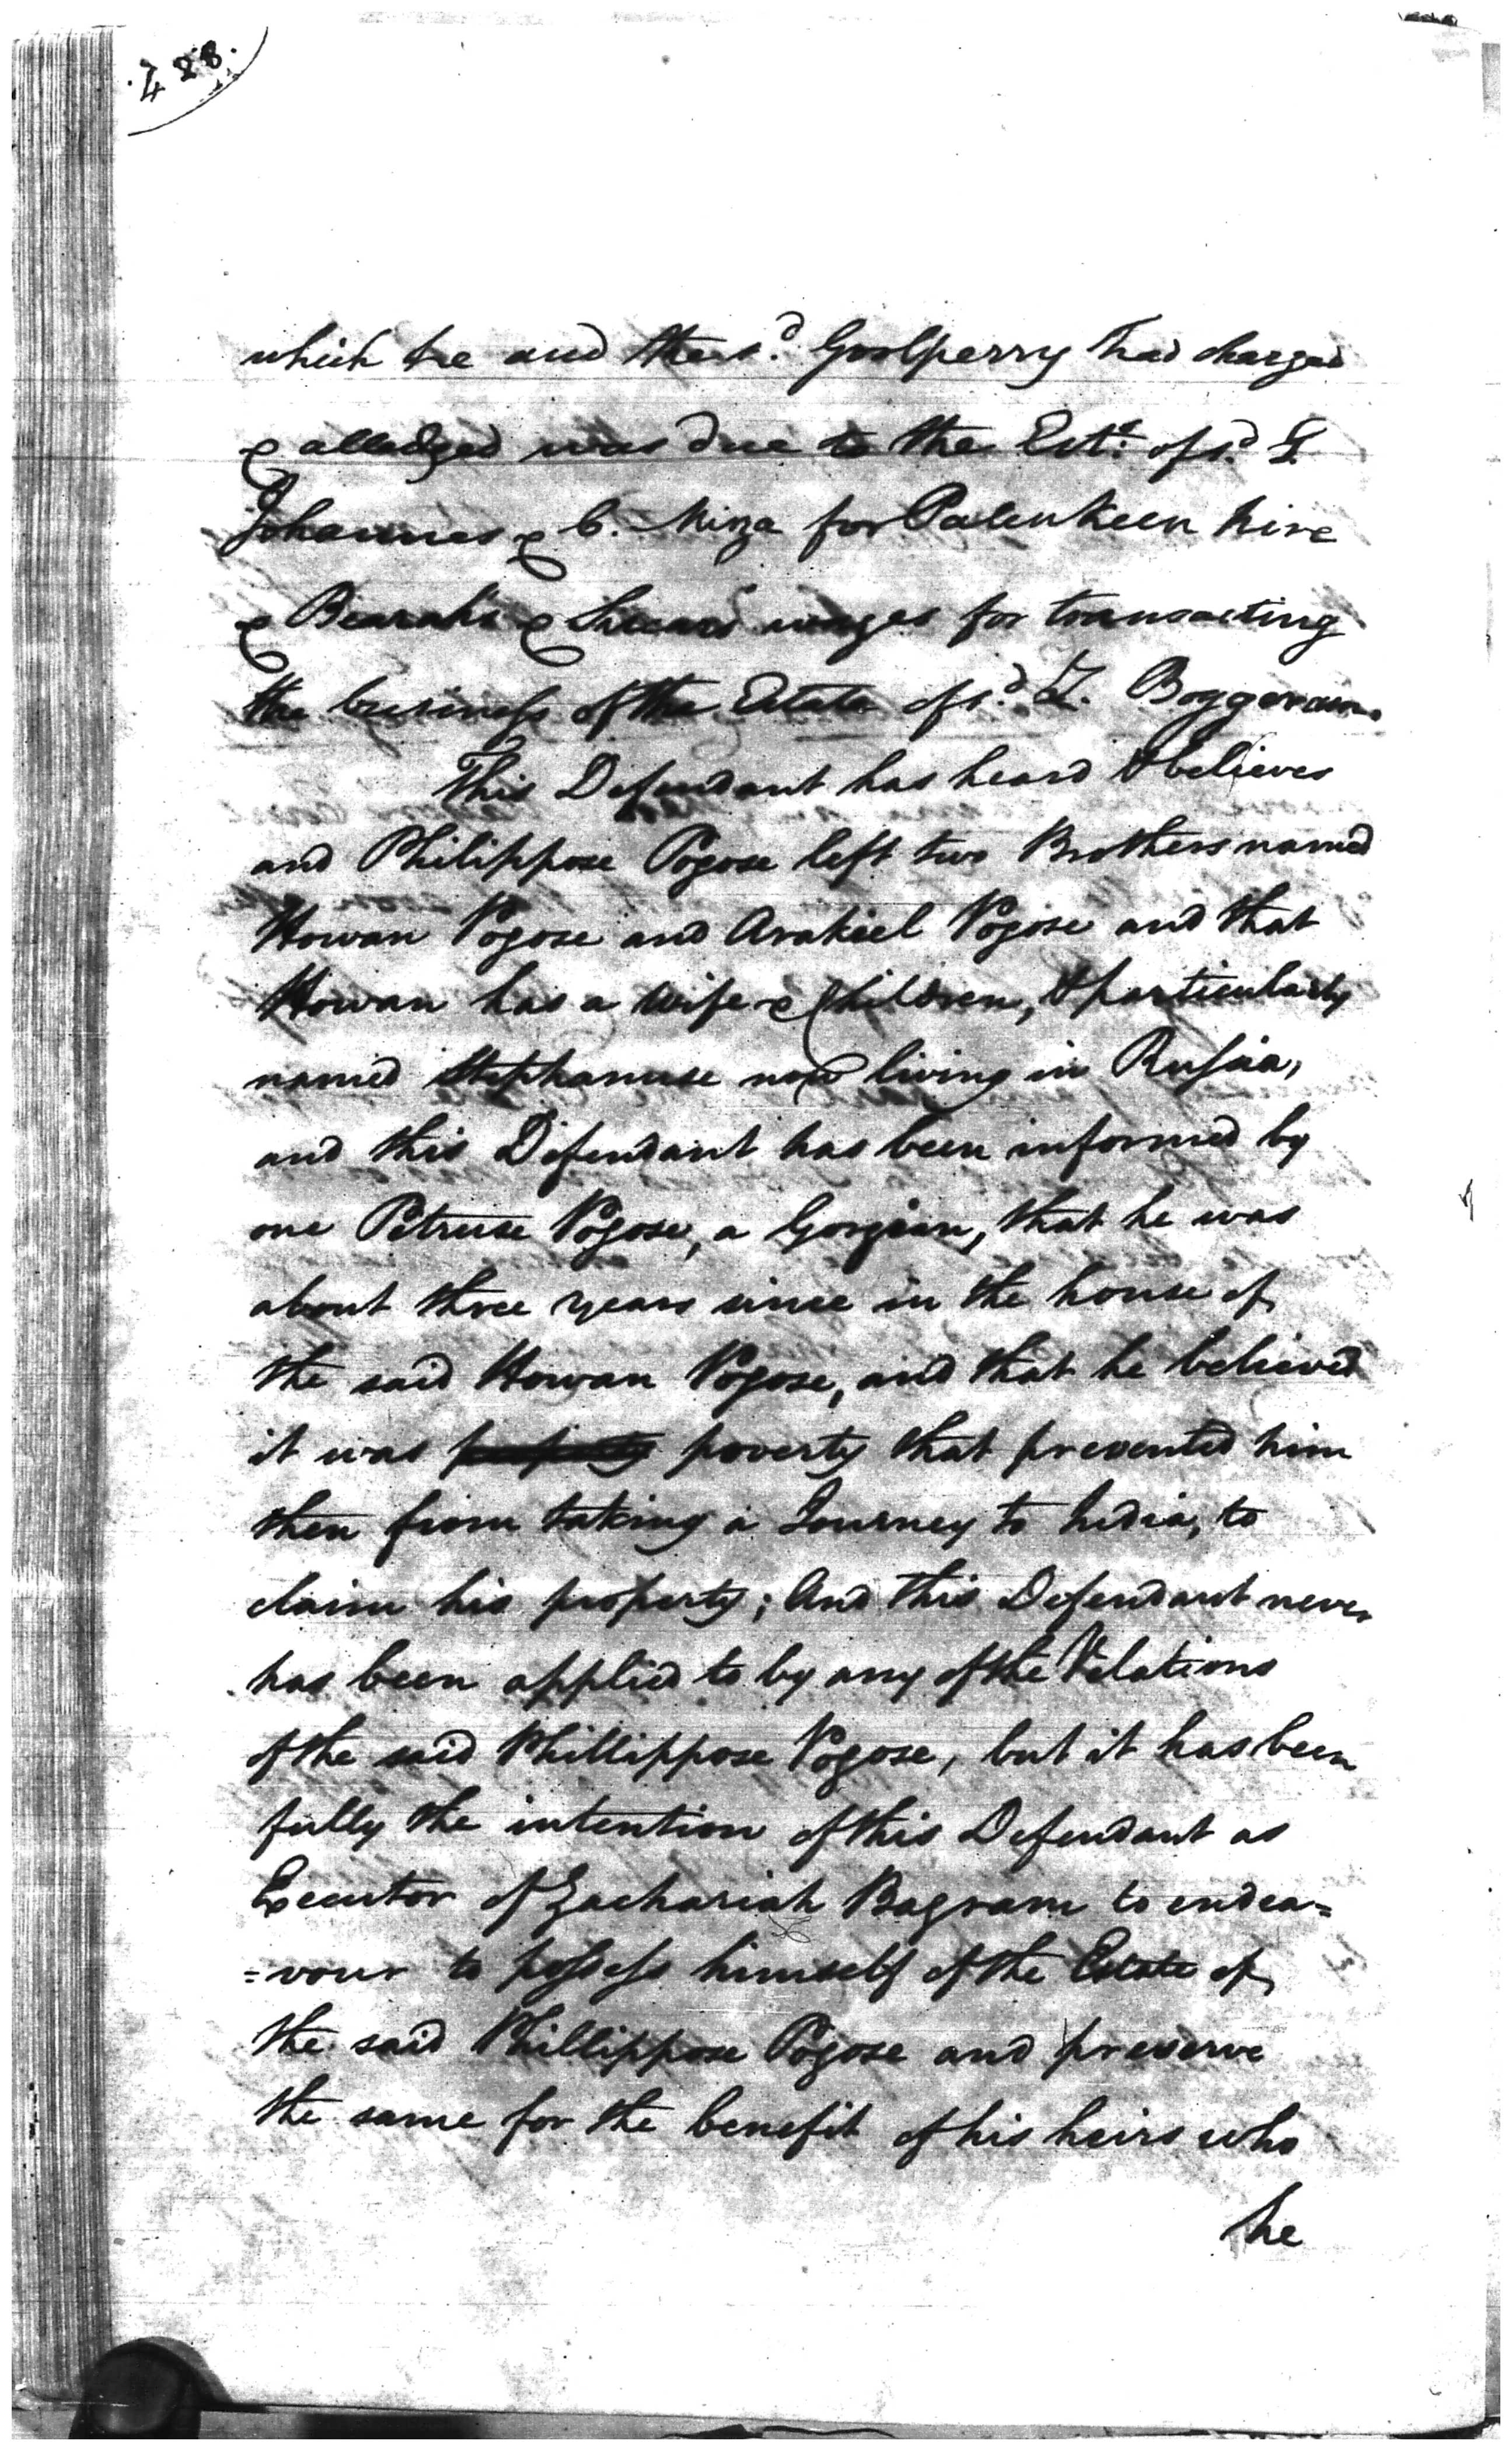 428.
which he and the s.d Goolperry had charged
& alledged was due to the Est.e of s.d
Johannes & C. Mirza for Palenkeen hire
& Bearah's & wages for transacting
the business of the Estate of s.d Z. Boggeram.
This Defendant has heard & believes
and Philippose Pogose left two Brothers named
Howan Pogose and Arakiel Pogose and that
Howan has a wife & Children, & particularly
named Stephanuse now living in Russia,
and this Defendant has been informed by
one Petruse Pogose, a Gorgian, that he was
about three years since in the house of
the said Howan Pogose, and that he believed
it was poverty that prevented him
then from taking a Journey to India, to
claim his property; And this Defendant never
has been applied to by any of the Relations
of the said Phillippose Pogose, but it has been
fully the intention of this Defendant as
Executor of Zachariah Bagram to endea=
=vour to possess himself of the Estate of
the said Phillippose Pogose and preserve
the same for the benefit of his heirs who
he